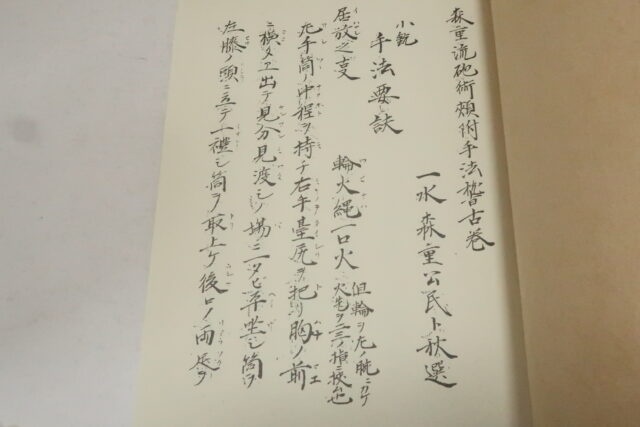 森重流砲術頬附手法稽古巻
一水森重公民卜秋選
小銃
手法要訣
居放之叓
輪火縄一口火
但輪ヲ左ノ腕ニカケ
火先ヲ二三ノ指ニ挟也
左手筒ノ中程ヲ持チ右手臺尻ヲ把リ胸ノ前
ニ横タヱ出テ見分見渡シソノ場ニ一タビ平坐シ筒ヲ
左膝ノ頭ニ立テ一禮シ筒ヲ取上ケ後口ノ両足ヲ